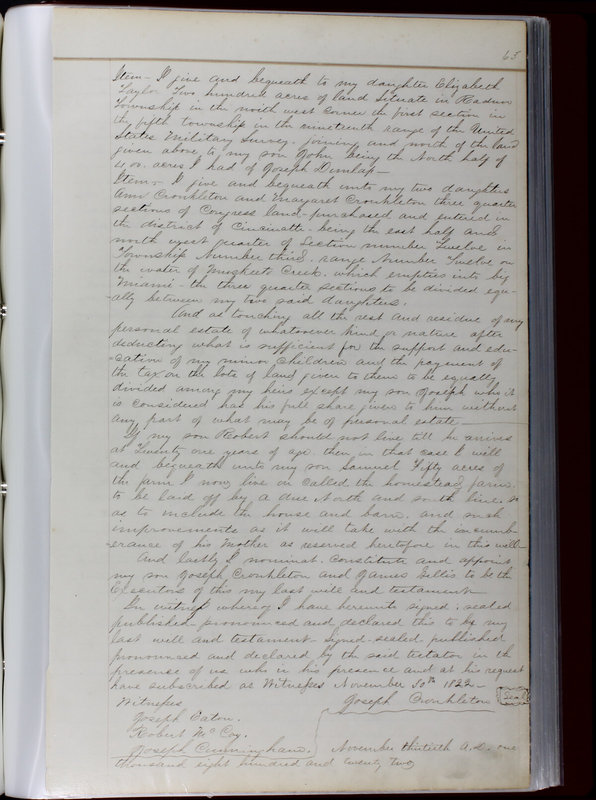 63
Item - I give and bequeath to my daughter Elizabeth
Taylor Two hundred acres of land Situate in Radnor
Township in the north west corner the first section in
the fifth township in the nineteenth range of the United
States Military Survey. joining and north of the land
given above to my son John being the North half of
400. acres I had of Joseph Dunlap -
Item, - I give and bequeath unto my two daughters
Ann Cronkleton and Margaret Cronkleton three quarter
sections of Congress land - purchased and entered in
the district of Cincinatti. being the east half and
north west quarter of Section number Twelve in
Township Number third. range Number Twelve on
the water of Muskeeto Creek. which empties into big
Miami - the three quarter sections to be divided equ-
-ally between my two said daughters.
And as touching all the rest and residue of my
personal estate of whatsoever kind or nature after
deducting what is sufficient for the support and edu-
=cation of my minor children and the payment of
the tax on the lots of land given to them to be equally
divided among my heirs except my son Joseph who it
is considered has his full share given to him without
any part of what may be of personal estate -
If my son Robert should not live till he arrives
at Twenty one years of age. then in that case I will
and bequeath unto my son Samuel Fifty acres of
the farm I now live on called the homestead farm.
to be laid off by a due North and south line. so
as to include the house and barn. and such
improvements as it will take with the incumb-
=erance of his Mother as reserved heretofore in this will -
And lastly I nominat. Constitute and appoint
my son Joseph Cronkleton and James Gillis to be the
Executors of this my last will and testament -
In witness whereof I have hereunto signed. sealed
published pronounced and declared this to be my
last will and testament - signed - sealed. published
pronounced and declared by the said tetator in th
presense of us who in his presence and at his request
have subscribed as Witnesses November 30th 1822 -
Witnesses Joseph Cronkleton Seal
Joseph Eaton.
Robert McCoy.
Joseph Cunningham. November thirtieth A.D. one
thousand eight hundred and twenty two